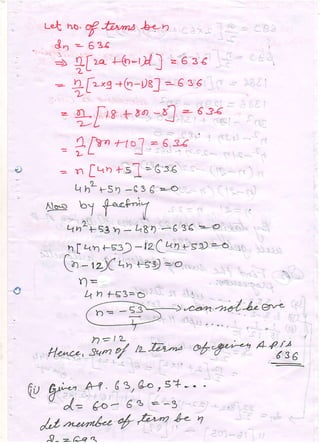 Let no. of terms be n
dn = 636
⇒ n/2 [2a + (n-1)d] = 636
= n/2 [2×9 + (n-1)8] = 636
= n/2 [18 + 8n - 8] = 636
= n/2 [8n + 10] = 636
= n [4n + 5] = 636
4n² + 5n - 636 = 0
Now by factriy
4n² + 53n - 48n - 636 = 0
n[4n+53) - 12(4n+53) = 0
(n-12)(4n+53) = 0
n =
4n + 53 = 0
n = -53/4 → can not be -ve
n = 12
Hence, sum of 12 terms of given A.P is 636
(ii) Given A.P. 63, 60, 57...
d = 60 - 63 = -3
Let number of term be n